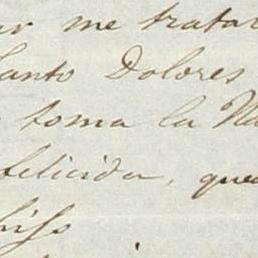 me tratar
Santo Dolores
toma la Na
felicidad, que
hijo